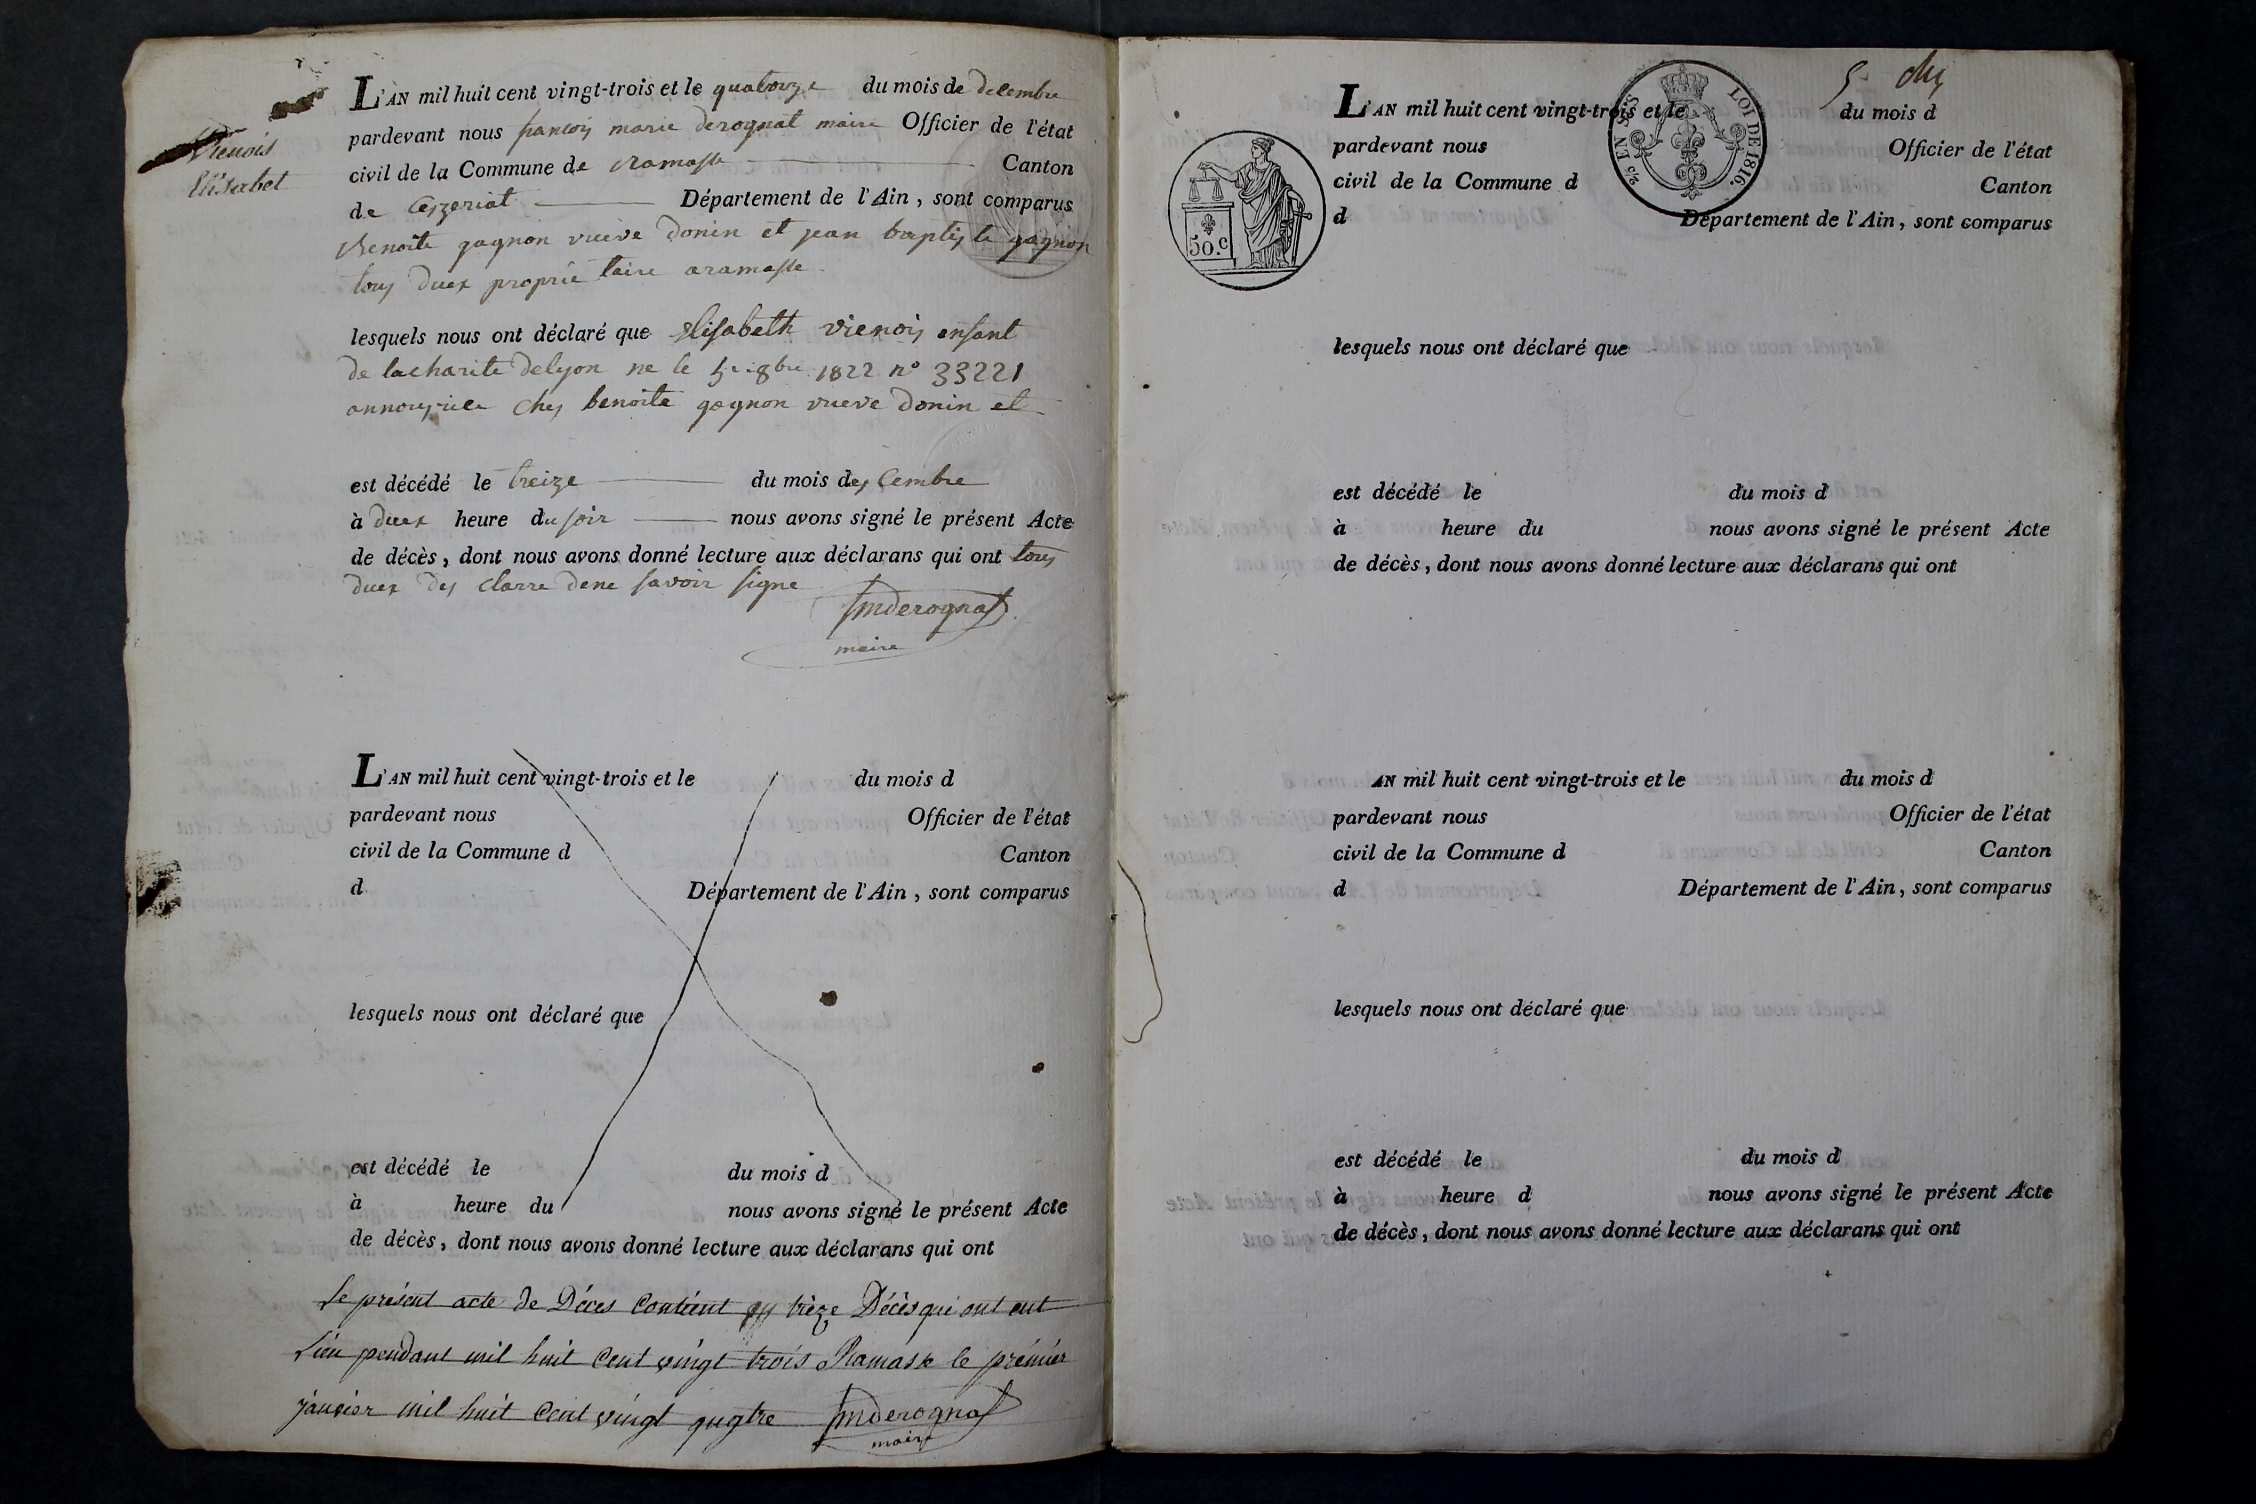 Vienois
Elisabet
L'AN mil huit cent vingt-trois et le quatorze du mois de decembre
pardevant nous francois marie derognat maire Officier de l'état
civil de la Commune de ramasse Canton
de Ceyzeriat Département de l'Ain, sont comparus
Benoite gagnon vueve donin et jean baptiste gagnon
tous duex propriétaire aramasse
lesquels nous ont déclaré que elisabeth vienois enfant
de lacharite delyon ne le 5 8bre 1822 n° 33221
annourice ches benoite gagnon vueve donin et
est décédé le treize du mois descembre
à duex heure du soir nous avons signé le présent Acte
de décès, dont nous avons donné lecture aux déclarans qui ont tous
duex des clarre dene savoir signe
fmderognat
maire
L'AN mil huit cent vingt-trois et le du mois d
pardevant nous Officier de l'état
civil de la Commune d Canton
d Département de l'Ain, sont comparus
lesquels nous ont déclaré que
est décédé le du mois d
à heure du nous avons signé le présent Acte
de décès, dont nous avons donné lecture aux déclarans qui ont
Le présent acte de Déces contient treze Décès qui ont eut
Lieu pendant mil huit Cent vingt trois Ramasse le prémier
janvier mil huit Cent vingt quatre fmderognat
maire
5
L'AN mil huit cent vingt-trois et le du mois d
pardevant nous Officier de l'état
civil de la Commune d Canton
d Département de l'Ain, sont comparus
50.c
2/5 EN SUS LOI DE 1816.
lesquels nous ont déclaré que
est décédé le du mois d
à heure du nous avons signé le présent Acte
de décès, dont nous avons donné lecture aux déclarans qui ont
AN mil huit cent vingt-trois et le du mois d
pardevant nous Officier de l'état
civil de la Commune d Canton
d Département de l'Ain, sont comparus
lesquels nous ont déclaré que
est décédé le du mois d
à heure d nous avons signé le présent Acte
de décès, dont nous avons donné lecture aux déclarans qui ont